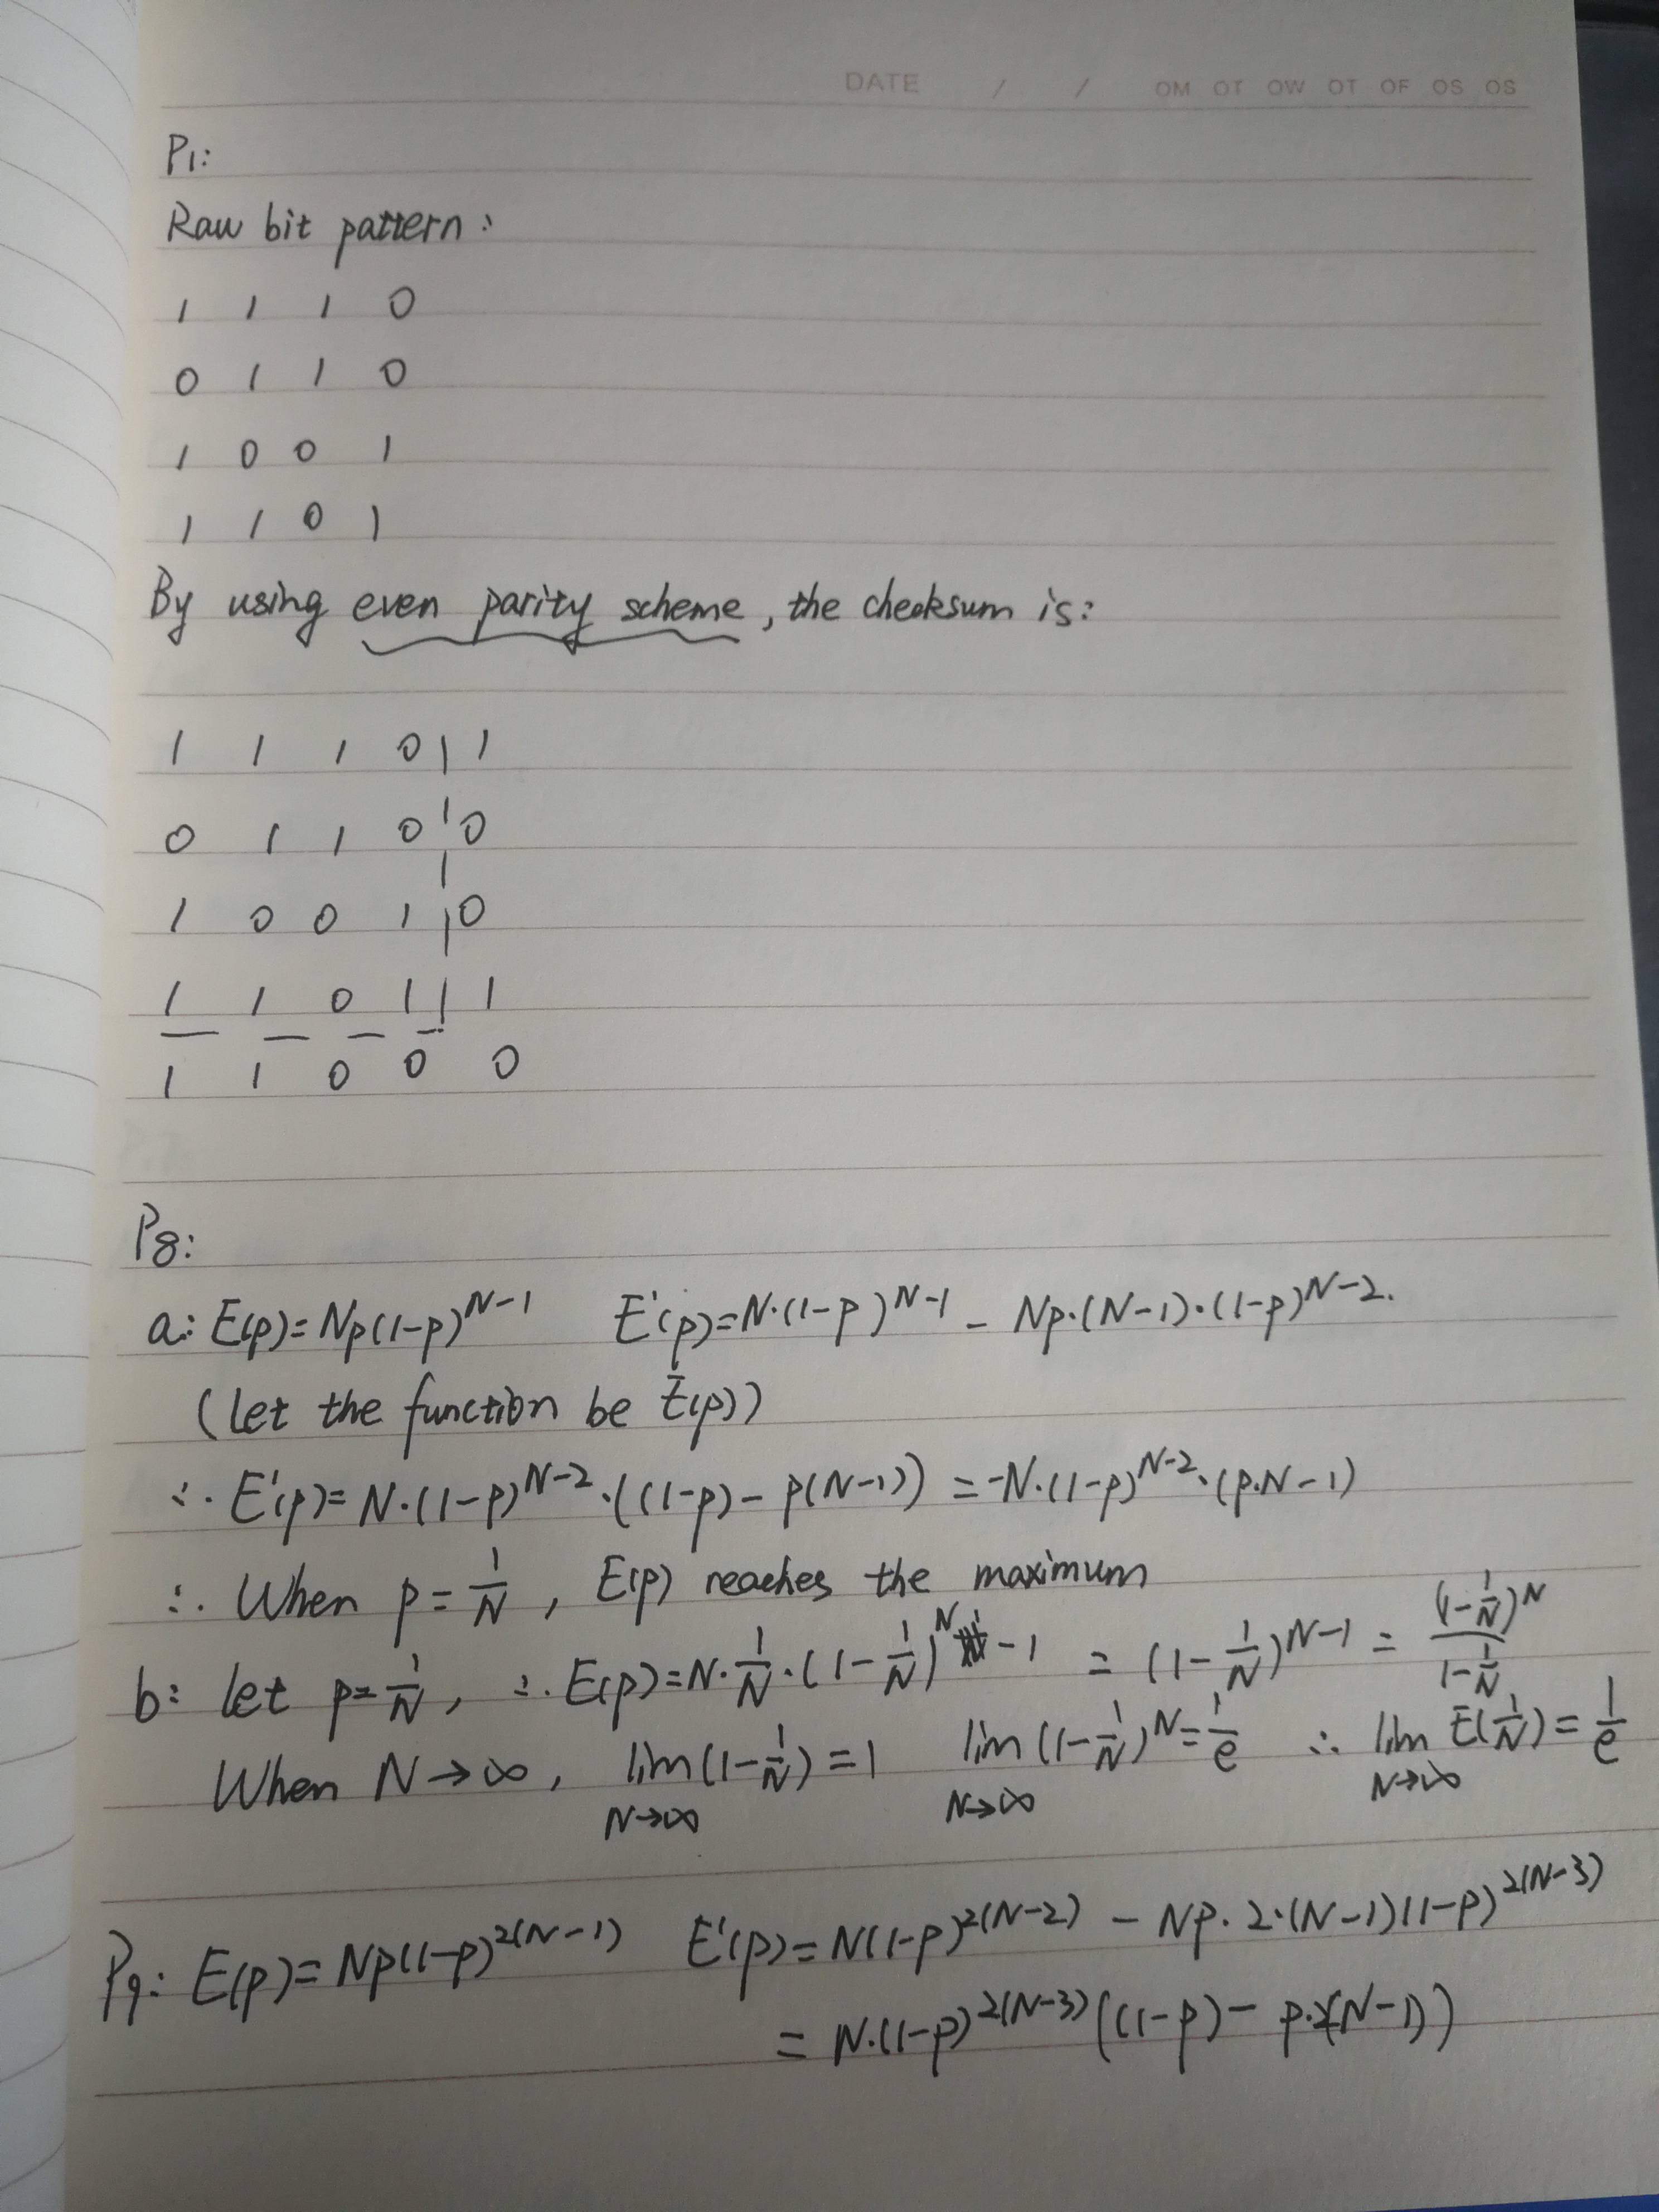 DATE / / OM OT OW OT OF OS OS
P1:
Raw bit pattern:
1 1 1 0
0 1 1 0
1 0 0 1
1 1 0 1
By using even parity scheme, the checksum is:
1 1 1 0 | 1
0 1 1 0 | 0
1 0 0 1 | 0
1 1 0 1 | 1
1 1 0 0 0
P8:
a: E(p)=Np(1-p)^{N-1} E'(p)=N·(1-p)^{N-1} - Np·(N-1)·(1-p)^{N-2}.
(let the function be E(p))
∴ E'(p)=N·(1-p)^{N-2}·((1-p)-p(N-1)) = -N·(1-p)^{N-2}·(p·N-1)
∴ When p=1/N, E(p) reaches the maximum
b: let p=1/N, ∴ E(p)=N·1/N·(1-1/N)^{N-1} = (1-1/N)^{N-1} = (1-1/N)^N/(1-1/N)
When N→∞, lim_{N→∞}(1-1/N)=1 lim_{N→∞}(1-1/N)^N=1/e ∴ lim_{N→∞} E(1/N)=1/e
P9: E(p)=Np(1-p)^{2(N-1)} E'(p)=N(1-p)^{2(N-2)} - Np·2·(N-1)(1-p)^{2(N-3)}
= N·(1-p)^{2(N-3)}((1-p)-p·2(N-1))